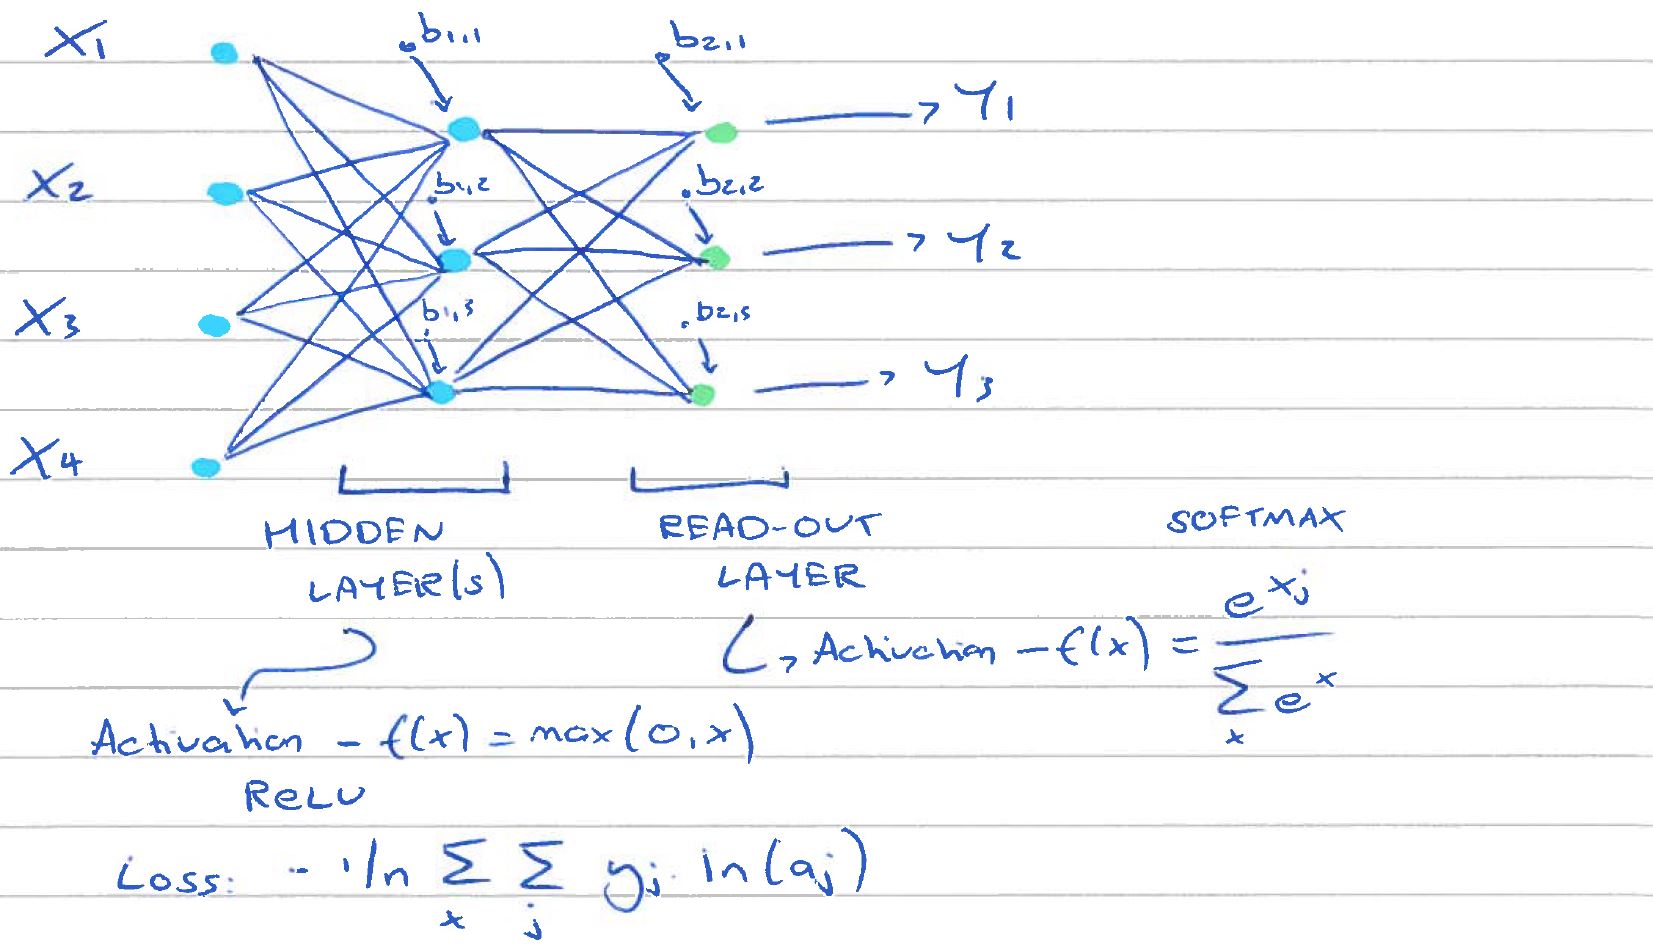 X1
b1,1
b2,1
Y1
X2
b1,2
b2,2
Y2
X3
b1,3
b2,3
Y3
X4
HIDDEN
LAYER(s)
READ-OUT
LAYER
SOFTMAX
Activation - f(x) = e^xj / Σx e^x
Activation - f(x) = max(0,x)
RELU
Loss: - 1/n Σx Σj yj ln(aj)